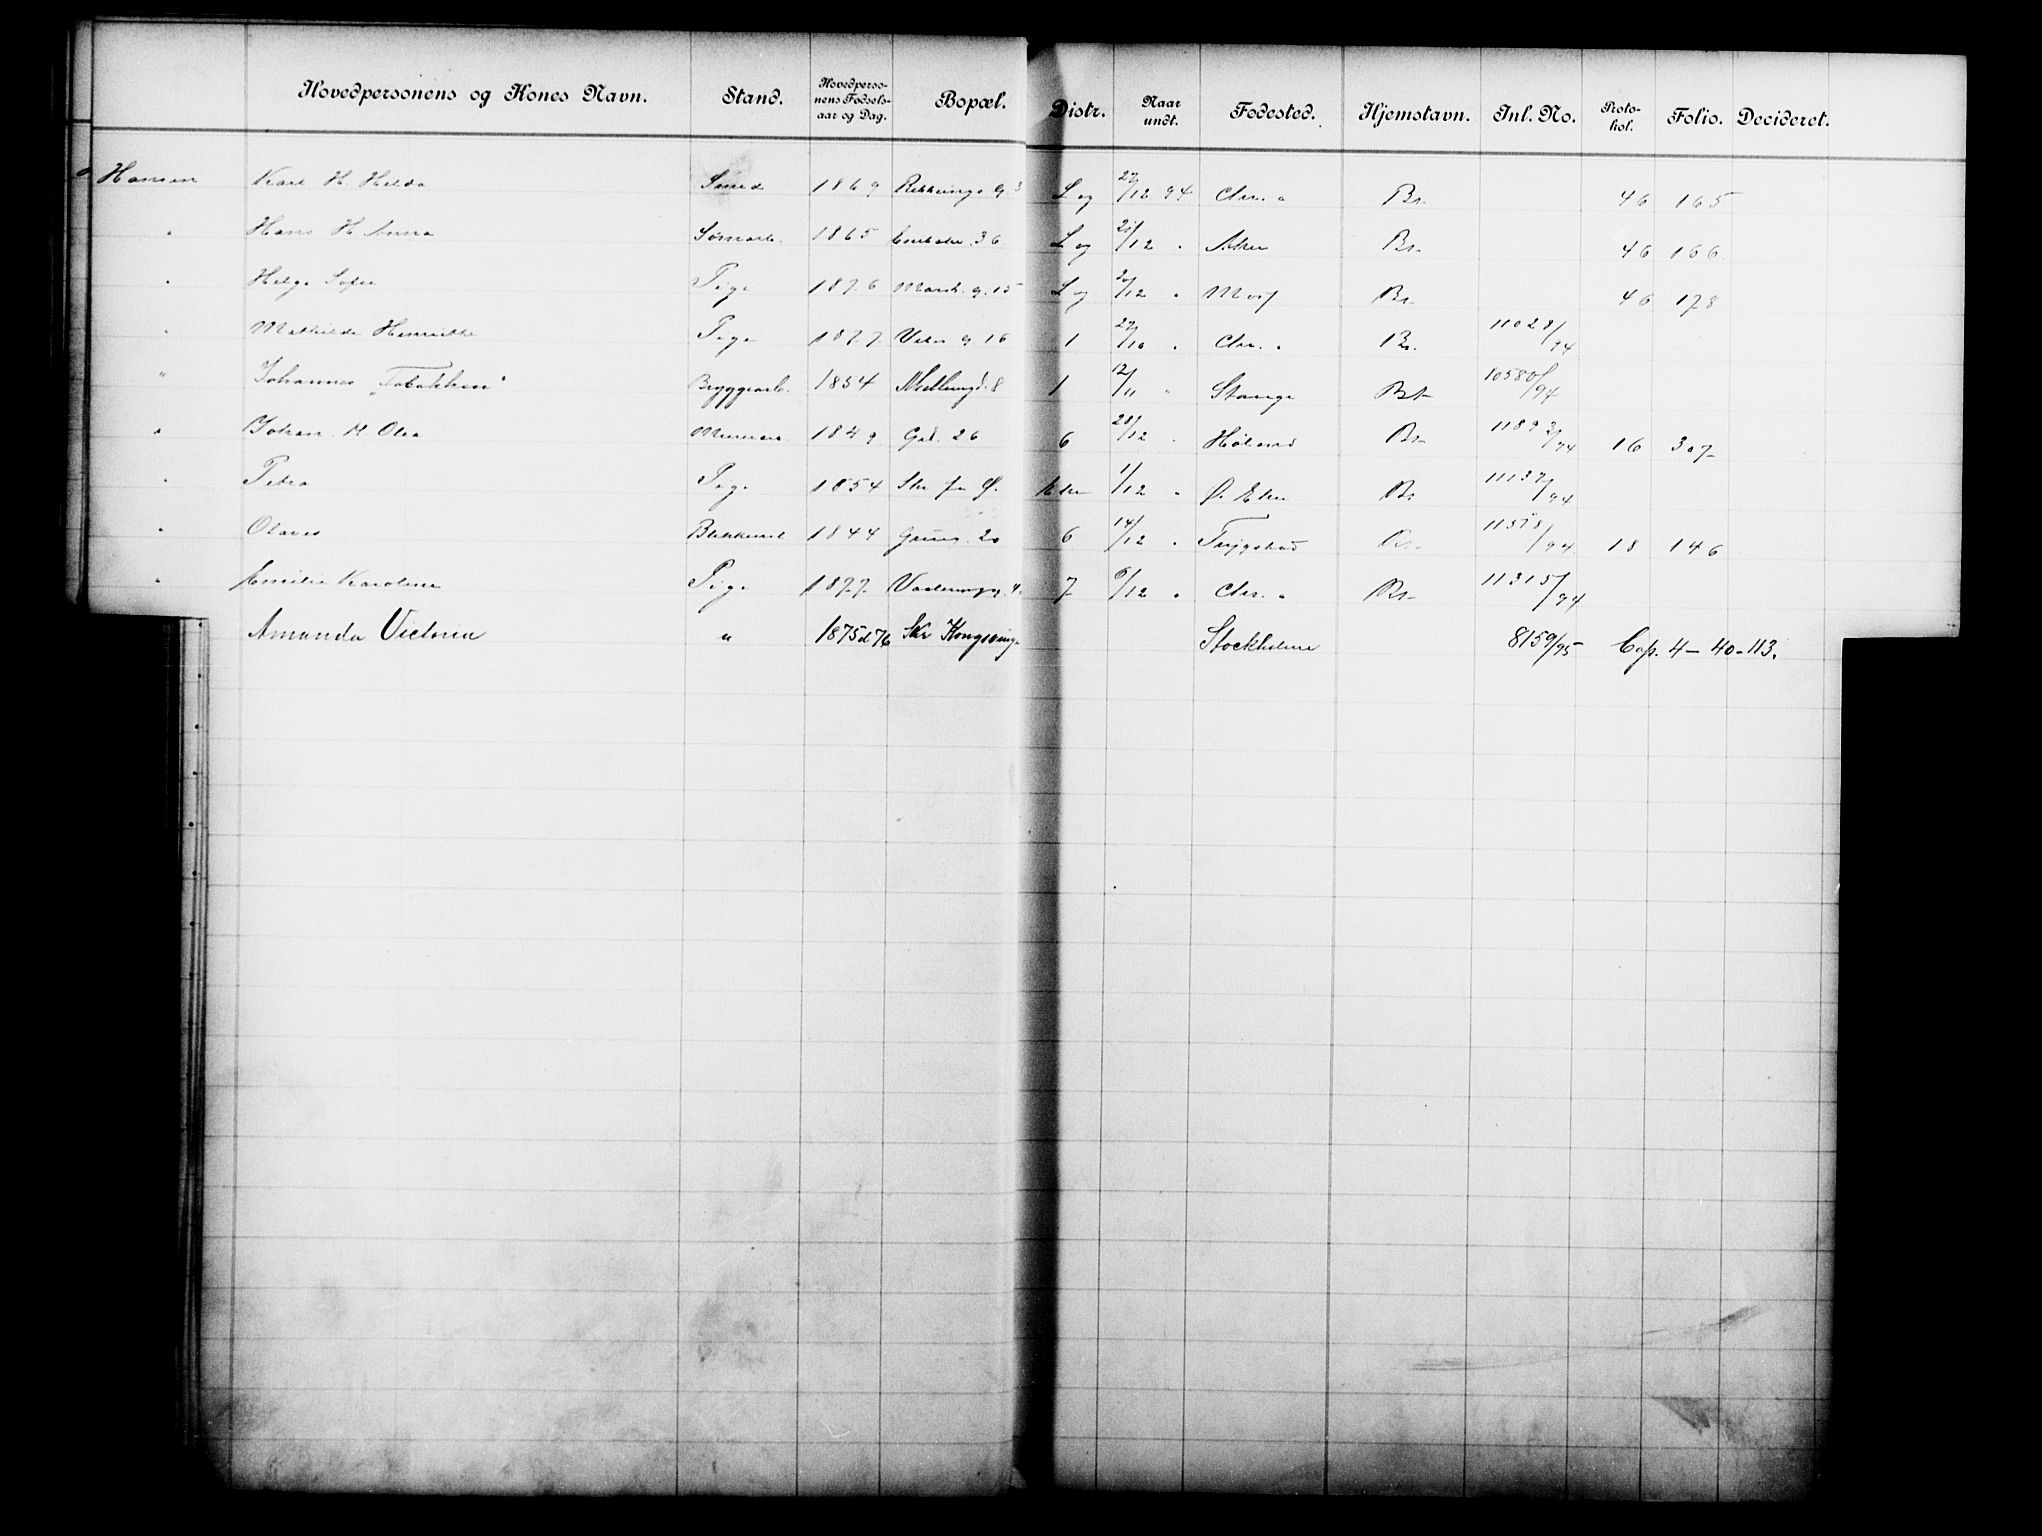 Hovedpersonens og Kones Navn. Stand. Hovedpersonens Fødselsaar og Dag. Bopæl. Distr. Naar undt. Fødested. Hjemstavn. Inl. No. Protokol. Folio. Decideret.
Hansen Karl H. Hilda Smed 1869 g. 3 L og 27/12 94 Chr. a Br. 46 165
" Hans H. Anna 1865 36 L og 21/12 " Aker Br. 46 166
" Helga Sofie Pige 1876 g. 15 L og 20/12 " Br. 46 178
" Mathilde Henriette Pige 1877 g. 16 1 27/10 " Chr. a Br. 11028/94
" Johannes Bryggearb. 1854 Møllergd. 8 1 12/11 " Stange Br. 10580/94
" Johan H. Olea 1849 26 6 28/12 " Høland Br. 11893/94 16 307
" Petra Pige 1854 Eker 1/12 " Ø. Eker Br. 11137/94
" Olaves 1844 20 6 14/12 " Trygstad Br. 11518/94 18 146
" Emilie Karoline Pige 1877 4 7 6/12 " Chr. a Br. 11315/94
Amanda Victoria " 1875 el 76 Kongsving. Stockholm 8159/95 Cop. 4 - 40 - 113.